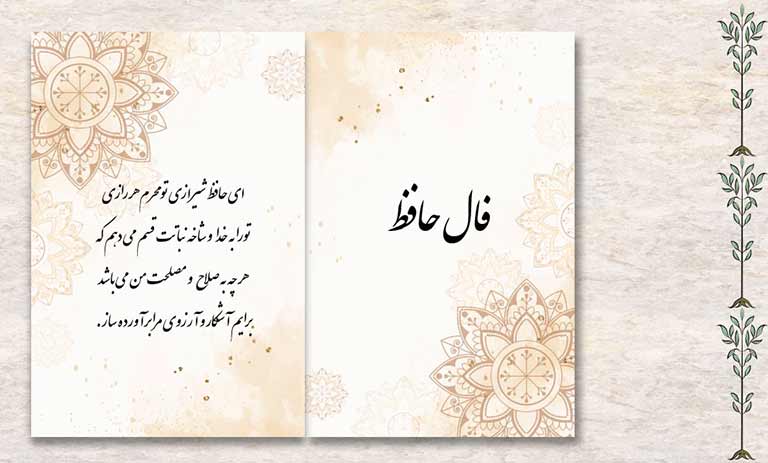 فال حافظ
ای حافظ شیرازی تو محرم هر رازی
تو را به خدا و شاخه نباتت قسم می دهم که
هر چه به صلاح و مصلحت من می باشد
برایم آشکار و آرزوی مرا برآورده ساز.